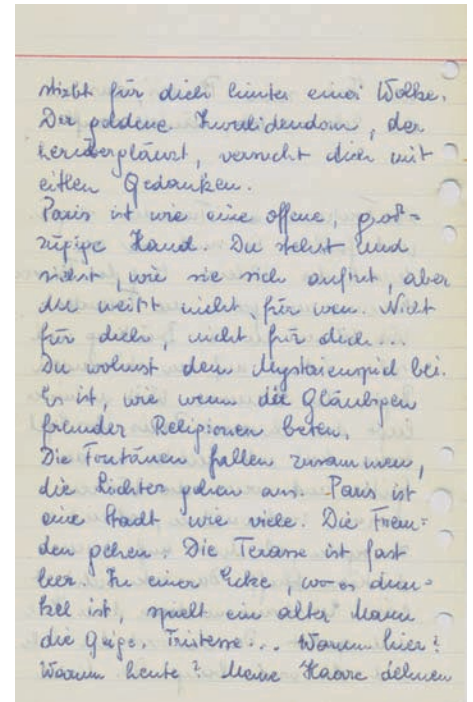 stirbt für dich hinter einer Wolke.
Der goldene Invalidendom, der
herüberglänzt, versucht dich mit
eitlen Gedanken.
Paris ist wie eine offene, groß=
zügige Hand. Du stehst und
siehst, wie sie sich auftut, aber
du weißt nicht, für wen. Nicht
für dich, nicht für dich...
Du wohnst dem Mysterienspiel bei.
Es ist, wie wenn die Gläubigen
fremder Religionen beten.
Die Fontänen fallen zusammen,
die Lichter gehen aus. Paris ist
eine Stadt wie viele. Die Frem=
den gehen. Die Terasse ist fast
leer. In einer Ecke, wo es dun=
kel ist, spielt ein alter Mann
die Geige. Tristesse... Warum hier?
Warum heute? Meine Haare dehnen